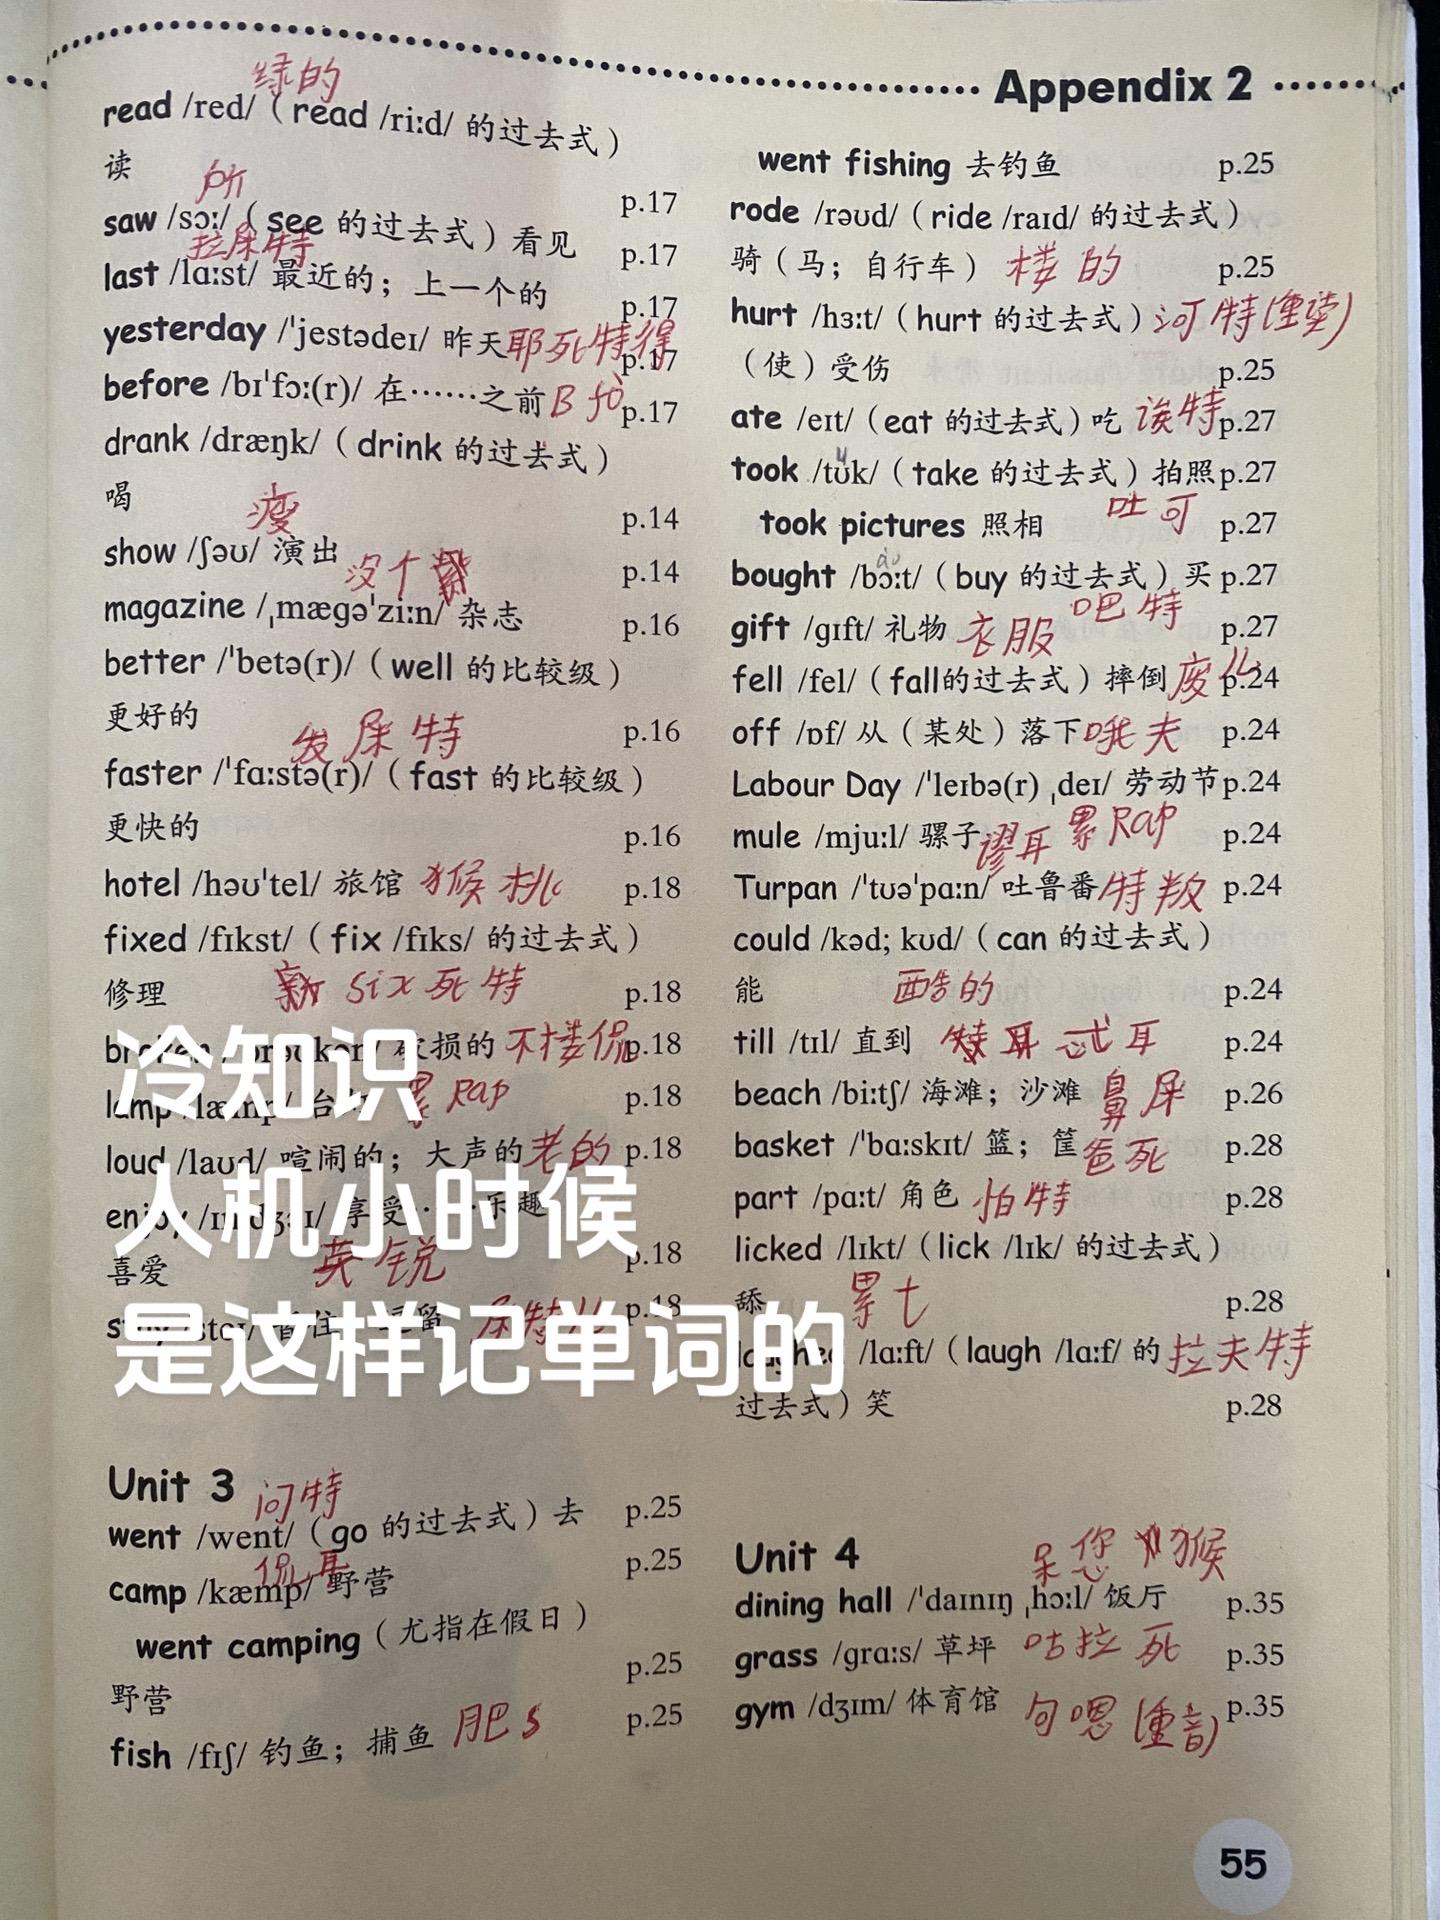 Appendix 2
绿的
read /red/（read /riːd/ 的过去式）
读 p.17
所
saw /sɔː/（see 的过去式）看见 p.17
拉屎特
last /lɑːst/ 最近的；上一个的 p.17
yesterday /ˈjestədeɪ/ 昨天 耶死特得 p.17
before /bɪˈfɔː(r)/ 在……之前 B fò p.17
drank /dræŋk/（drink 的过去式）
喝 p.14
瘦
show /ʃəʊ/ 演出 p.14
没个
magazine /ˌmæɡəˈziːn/ 杂志 p.16
better /ˈbetə(r)/（well 的比较级）
更好的 p.16
发屎特
faster /ˈfɑːstə(r)/（fast 的比较级）
更快的 p.16
hotel /həʊˈtel/ 旅馆 猴桃 p.18
fixed /fɪkst/（fix /fɪks/ 的过去式）
修理 six死特 p.18
破损的 不楼侃 p.18
lamp 累Rap p.18
loud /laʊd/ 喧闹的；大声的 老的 p.18
enjoy 享受……乐趣
喜爱 英锐 p.18
p.18
冷知识
人机小时候
是这样记单词的
Unit 3
问特
went /went/（go 的过去式）去 p.25
侃耳
camp /kæmp/ 野营 p.25
went camping（尤指在假日）
野营 p.25
fish /fɪʃ/ 钓鱼；捕鱼 肥s p.25
went fishing 去钓鱼 p.25
rode /rəʊd/（ride /raɪd/ 的过去式）
骑（马；自行车） 楼的 p.25
hurt /hɜːt/（hurt 的过去式） 河特(重读)
（使）受伤 p.25
ate /eɪt/（eat 的过去式）吃 诶特 p.27
took /tʊk/（take 的过去式）拍照 p.27
took pictures 照相 吐可 p.27
bought /bɔːt/（buy 的过去式）买 p.27
吧特
gift /ɡɪft/ 礼物 衣服 p.27
fell /fel/（fall的过去式）摔倒 废儿 p.24
off /ɒf/ 从（某处）落下 哦夫 p.24
Labour Day /ˈleɪbə(r) ˌdeɪ/ 劳动节 p.24
累Rap
mule /mjuːl/ 骡子 谬耳 p.24
Turpan /ˈtʊəˈpɑːn/ 吐鲁番 特叛 p.24
could /kəd; kʊd/（can 的过去式）
能 酷的 p.24
till /tɪl/ 直到 忒耳 p.24
beach /biːtʃ/ 海滩；沙滩 鼻屎 p.26
basket /ˈbɑːskɪt/ 篮；筐 爸死 p.28
part /pɑːt/ 角色 怕特 p.28
licked /lɪkt/（lick /lɪk/ 的过去式）
舔 累七 p.28
laughed /lɑːft/（laugh /lɑːf/ 的 拉夫特
过去式）笑 p.28
Unit 4
呆您 猴
dining hall /ˈdaɪnɪŋ ˌhɔːl/ 饭厅 p.35
grass /ɡrɑːs/ 草坪 咕拉死 p.35
gym /dʒɪm/ 体育馆 句嗯(重音) p.35
55